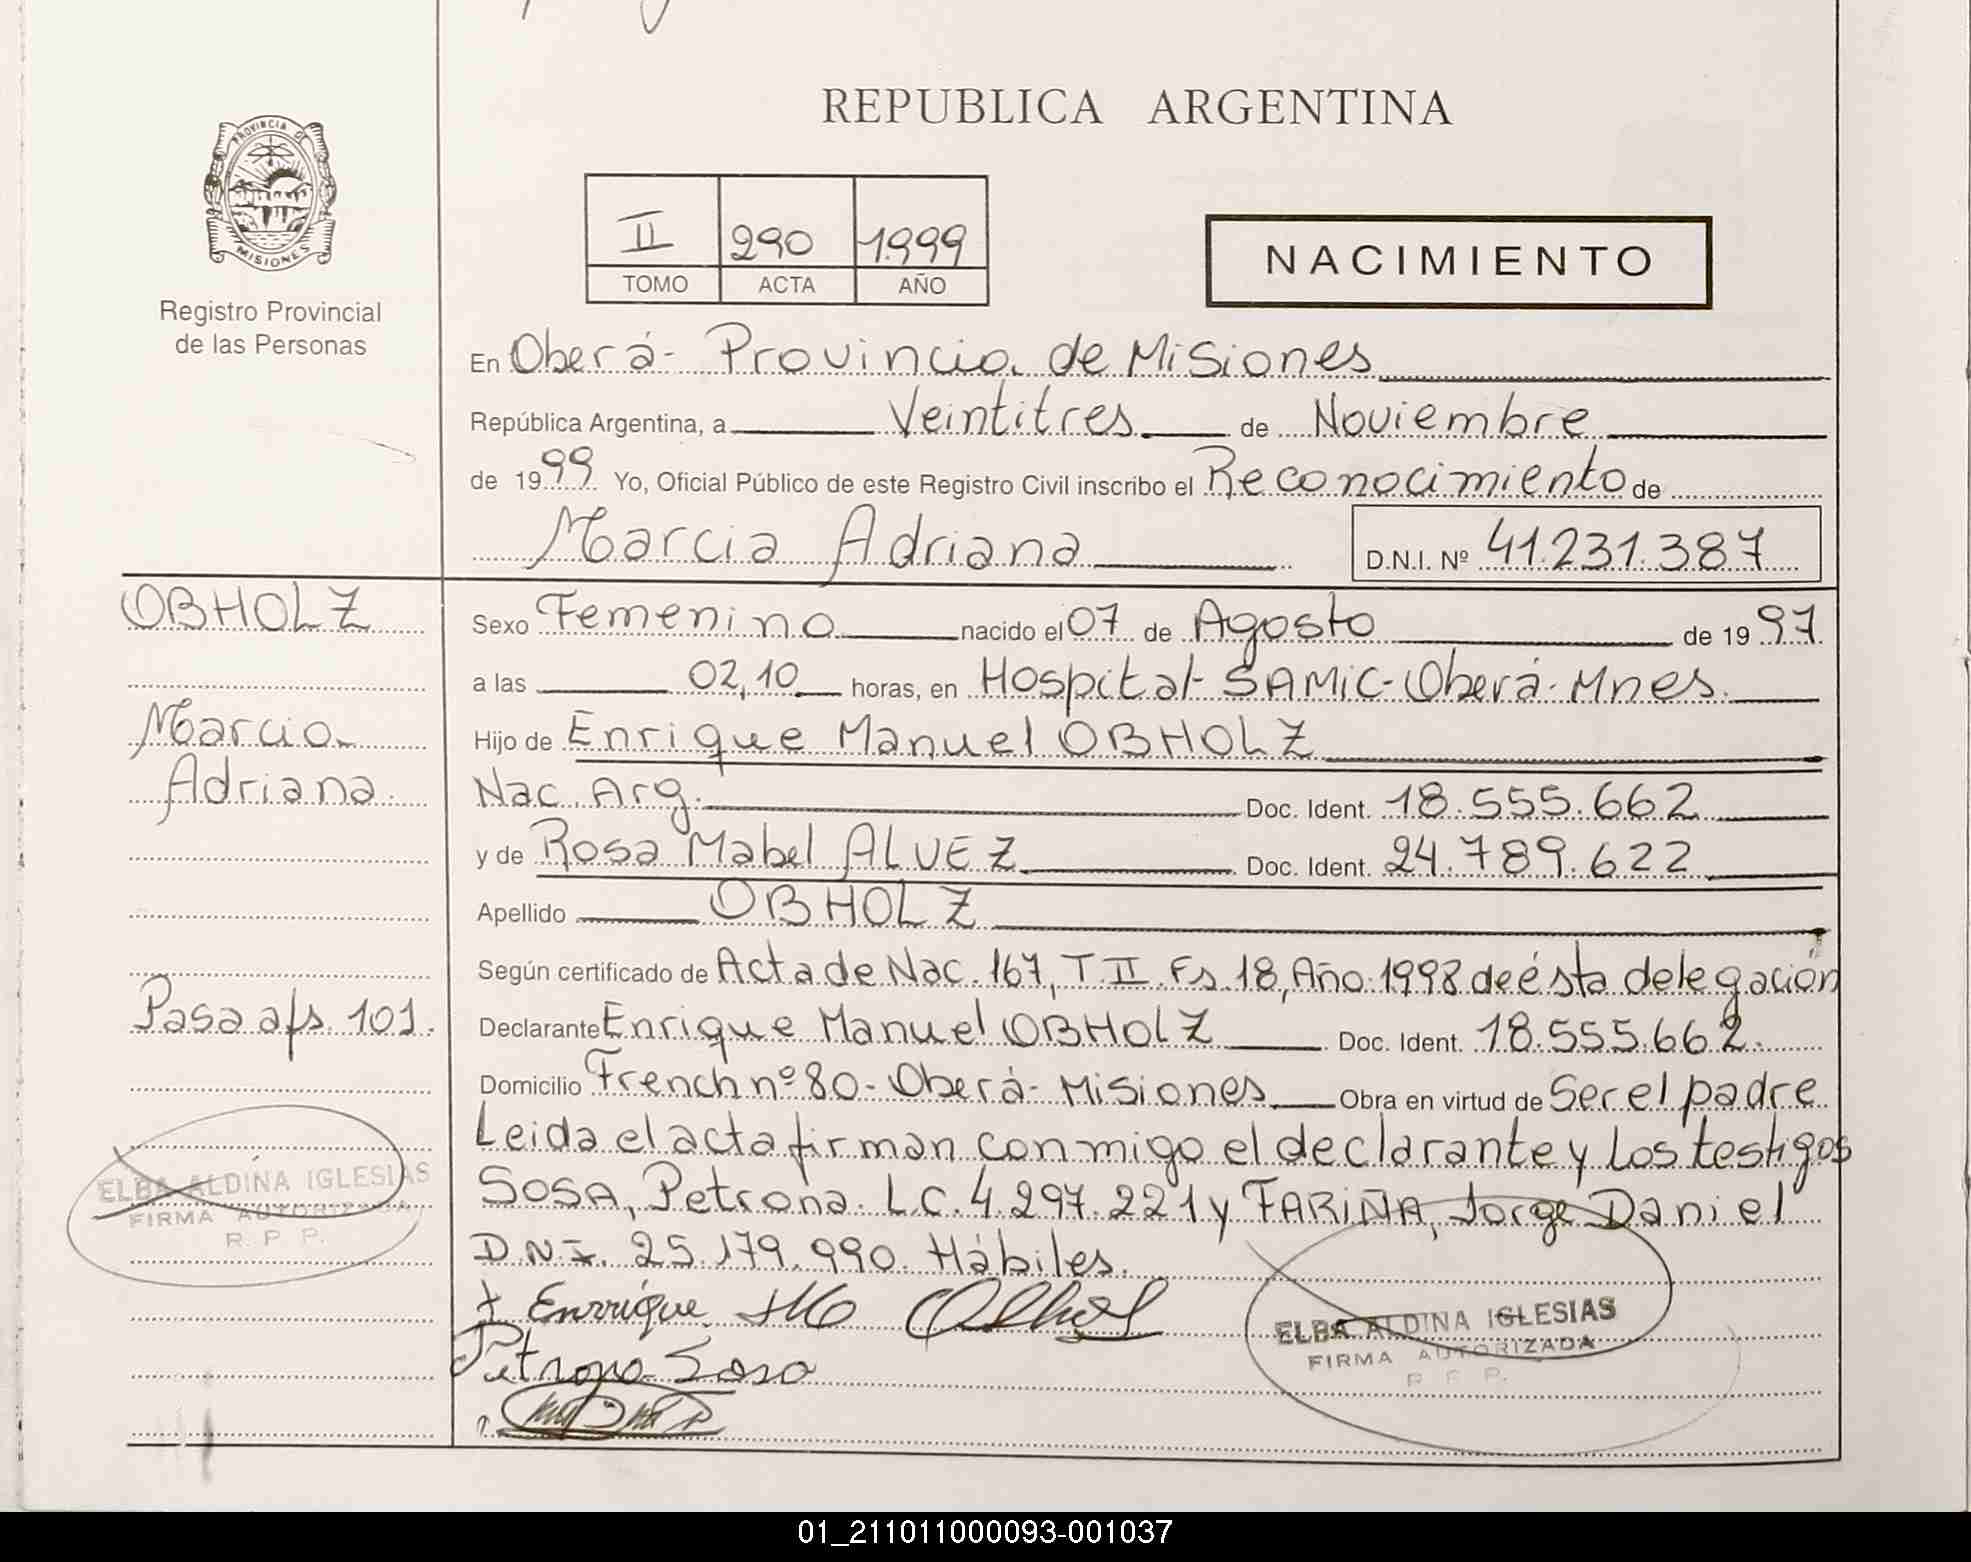 REPUBLICA ARGENTINA
PROVINCIA D
MISIONES
Registro Provincial
de las Personas
II 290 1.999
TOMO ACTA AÑO
NACIMIENTO
En Oberá- Provincia de Misiones
República Argentina, a Veintitres de Noviembre
de 1999 Yo, Oficial Público de este Registro Civil inscribo el Reconocimiento de
Marcia Adriana D.N.I. Nº 41.231.387
OBHOLZ
Marcia
Adriana.
Pasa a fs. 101.
ELBA ALDINA IGLESIAS
FIRMA AUTORIZADA
R. P. P.
Sexo Femenino nacido el 07 de Agosto de 1997.
a las 02,10 horas, en Hospital SAMIC-Oberá-Mnes.
Hijo de Enrique Manuel OBHOLZ
Nac. Arg. Doc. Ident. 18.555.662
y de Rosa Mabel ALVEZ Doc. Ident. 24.789.622
Apellido OBHOLZ
Según certificado de Acta de Nac. 167, T.II. Fs. 18, Año 1998 de ésta delegación
Declarante Enrique Manuel OBHOLZ Doc. Ident. 18.555.662.
Domicilio French nº 80- Oberá- Misiones Obra en virtud de Ser el padre
Leida el acta firman conmigo el declarante y los testigos
SOSA, Petrona. L.C. 4.297.221 y FARIÑA, Jorge Daniel
D.N.I. 25.179.990. Hábiles.
Enrrique
Petrona Sosa
ELBA ALDINA IGLESIAS
FIRMA AUTORIZADA
R. P. P.
01_211011000093-001037